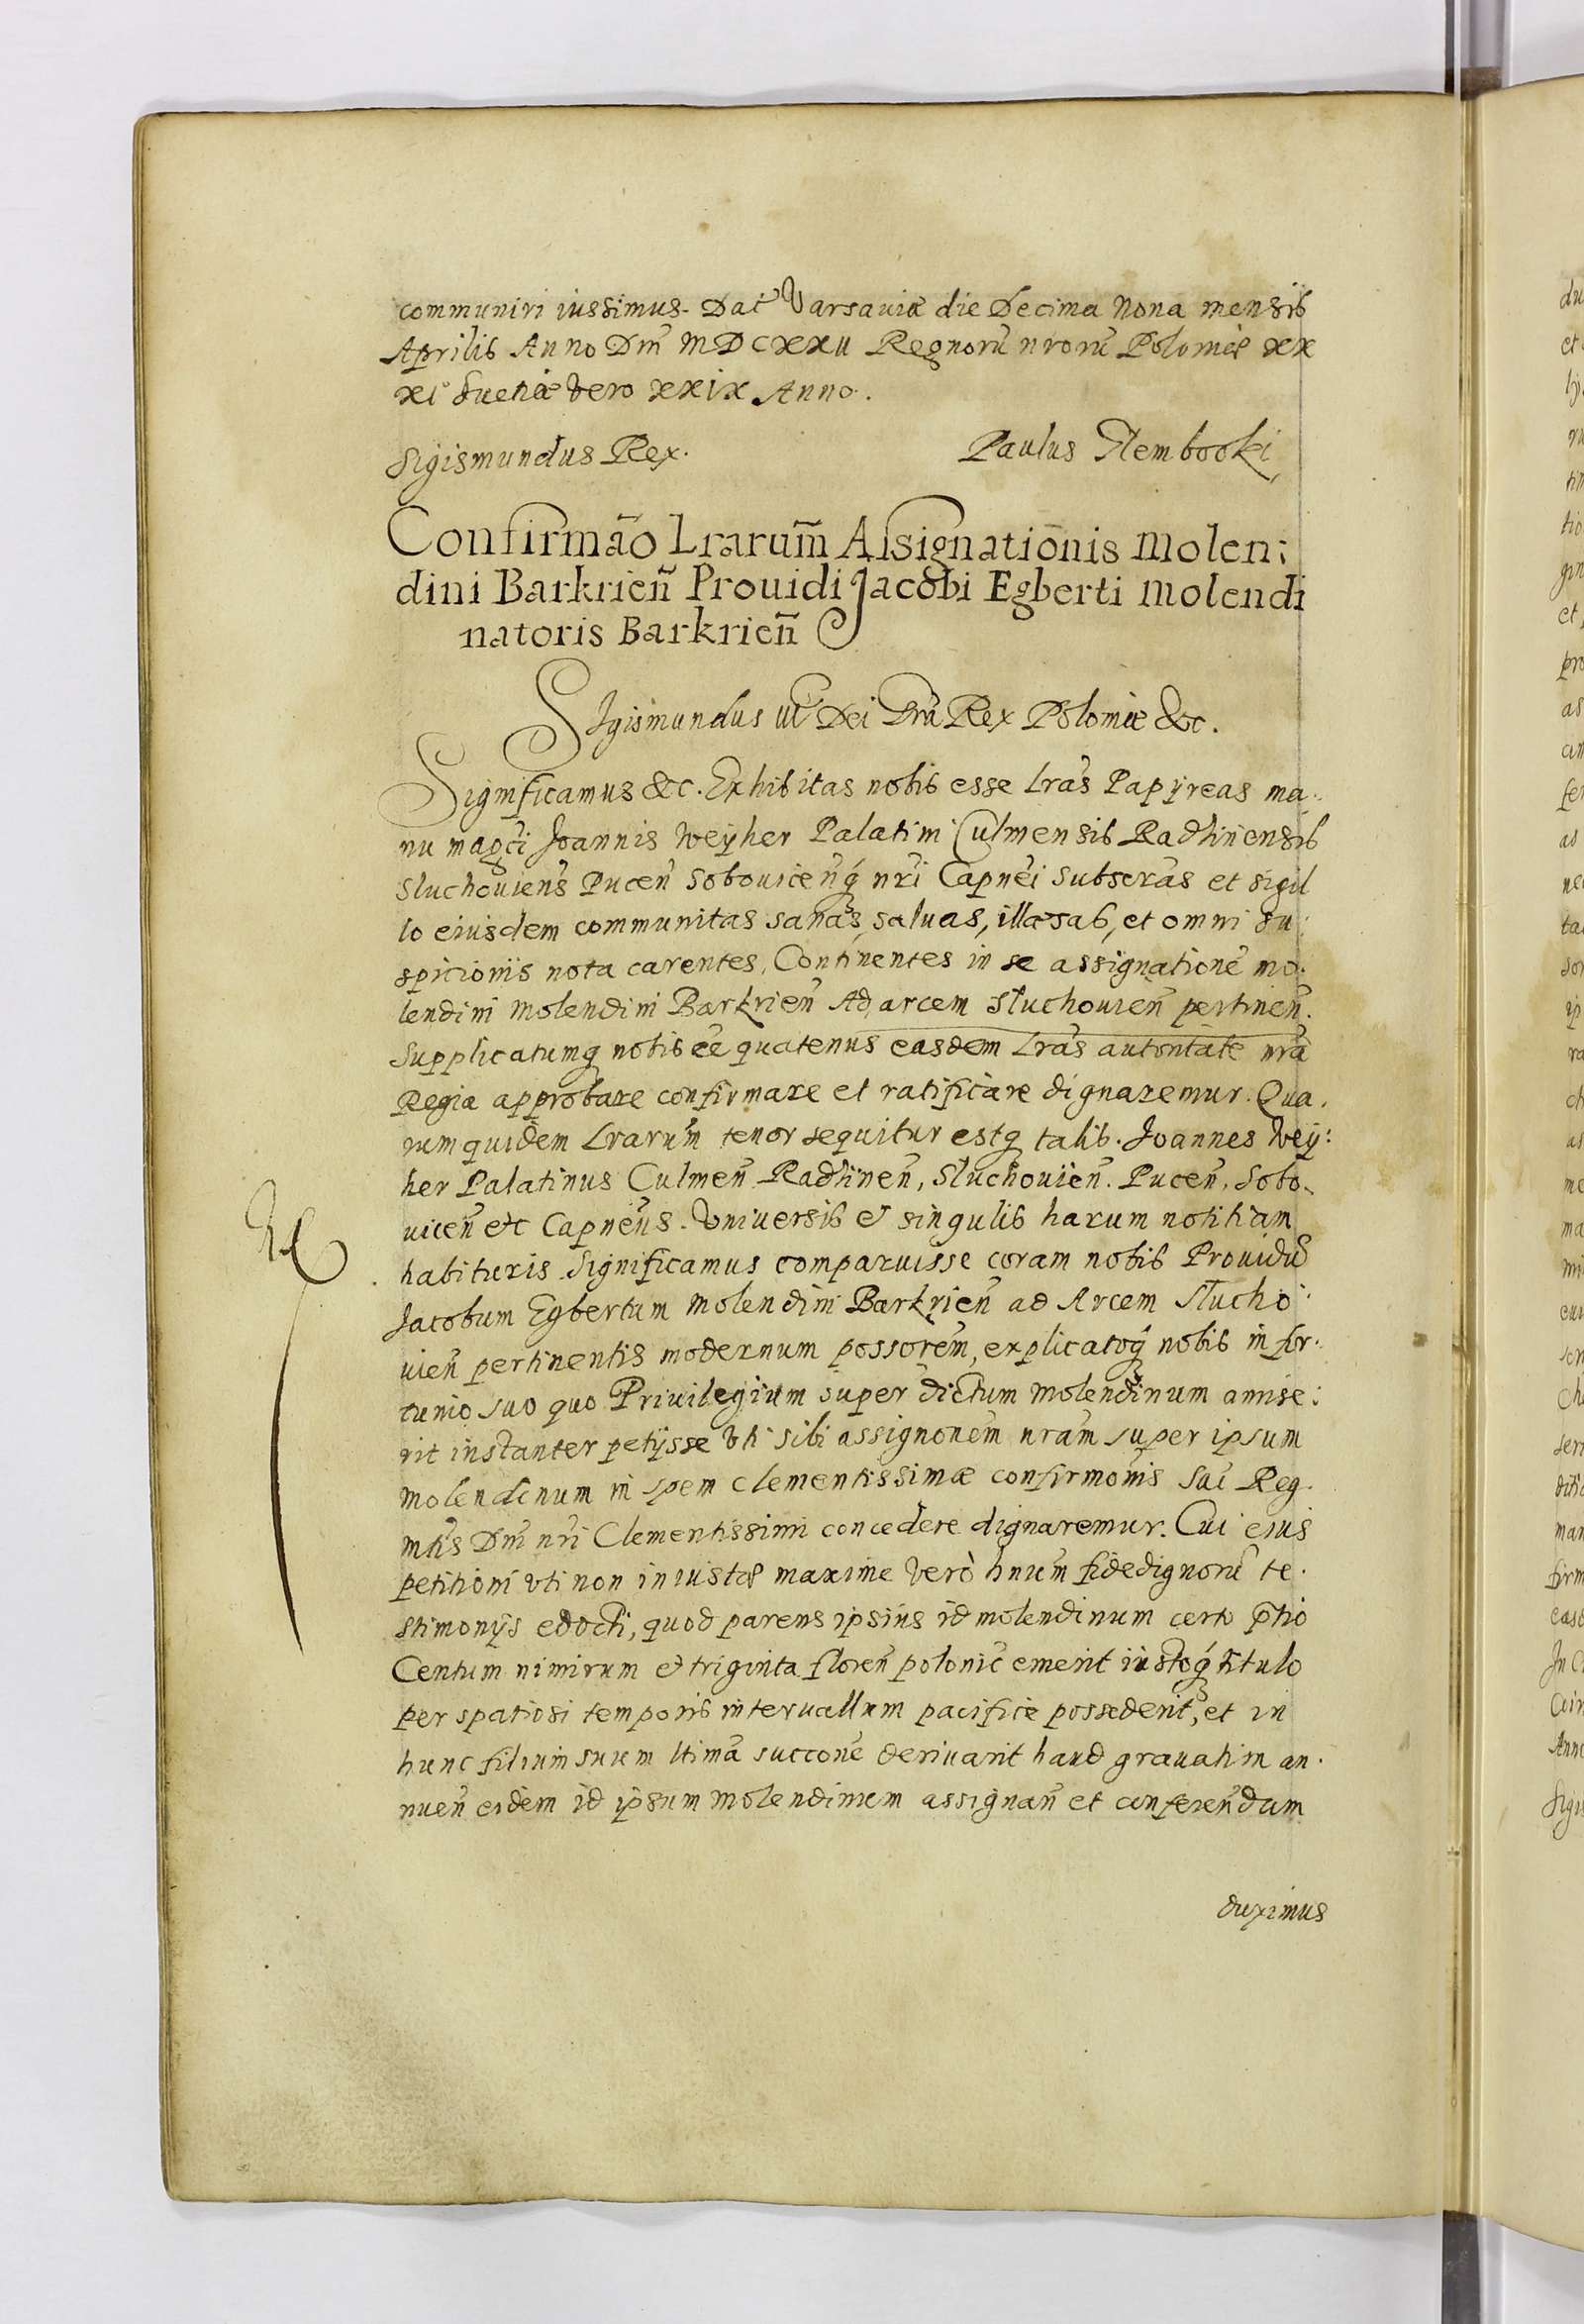 communiri iussimus. Dat Varsauiæ die Decima Nona mensis
Aprilis Anno Dni MDCXXII Regnorũ nrorũ Poloniæ xx
xi Sueciæ vero xxix Anno.
Sigismundus Rex.
Paulus
Confirmão Lrarum̃ Assignationis Molen:
dini Barkrieñ Prouidi Jacobi Egberti Molendi
natoris Barkrieñ
Sigismundus III Dei Gra Rex Poloniæ &c.
Significamus &c. Exhibitas nobis esse Lras Papyreas ma
nu magci Joannis Weyher Palatini Culmensis Radzinensis
Sluchouiens Puceñ Sobouiceñq nri Capnei subscras et sigil
lo eiusdem communitas sanas, saluas, illæsas, et omni su:
spicionis nota carentes, Continentes in se assignationẽ mo
lendini Molendini Barkrieñ Ad arcem Sluchouieñ pertineñ.
Supplicatumq nobis eẽ quatenus easdem Lras autoritate nrã
Regia approbare confirmare et ratificare dignaremur. Qua
rum quidem Lrarum tenor sequitur estq talis. Joannes Wey:
her Palatinus Culmeñ Radzineñ, Sluchouieñ. Puceñ, Sobo
uiceñ etc Capneus. Vniuersis & singulis harum notitiam
habituris Significamus comparuisse coram nobis Prouidũ
Jacobum Egbertum Molendini Barkrieñ ad Arcem Slucho:
uieñ pertinentis modernum possorem, explicatoq nobis infor
tunio suo quo Priuilegium super dictum Molendinum amise:
rit instanter petijsse vti sibi assignonem nram super ipsum
molendinum in spem Clementissimæ confirmonis Sac Reg.
Mtis Dni nri Clementissimi concedere dignaremur. Cui eius
petitioni vti non iniustæ maxime verò hnum fidedignorũ te
stimonijs edocti, quod parens ipsius id molendinum certo ptio
Centum nimirum & triginta floreñ polonic emerit iustoq titulo
per spatiosi temporis interuallum pacifice possederit, et in
hunc filium suum ltima succone deriuarit haud grauatim an
nueñ eidem id ipsum molendinum assignañ et conferendum
duximus